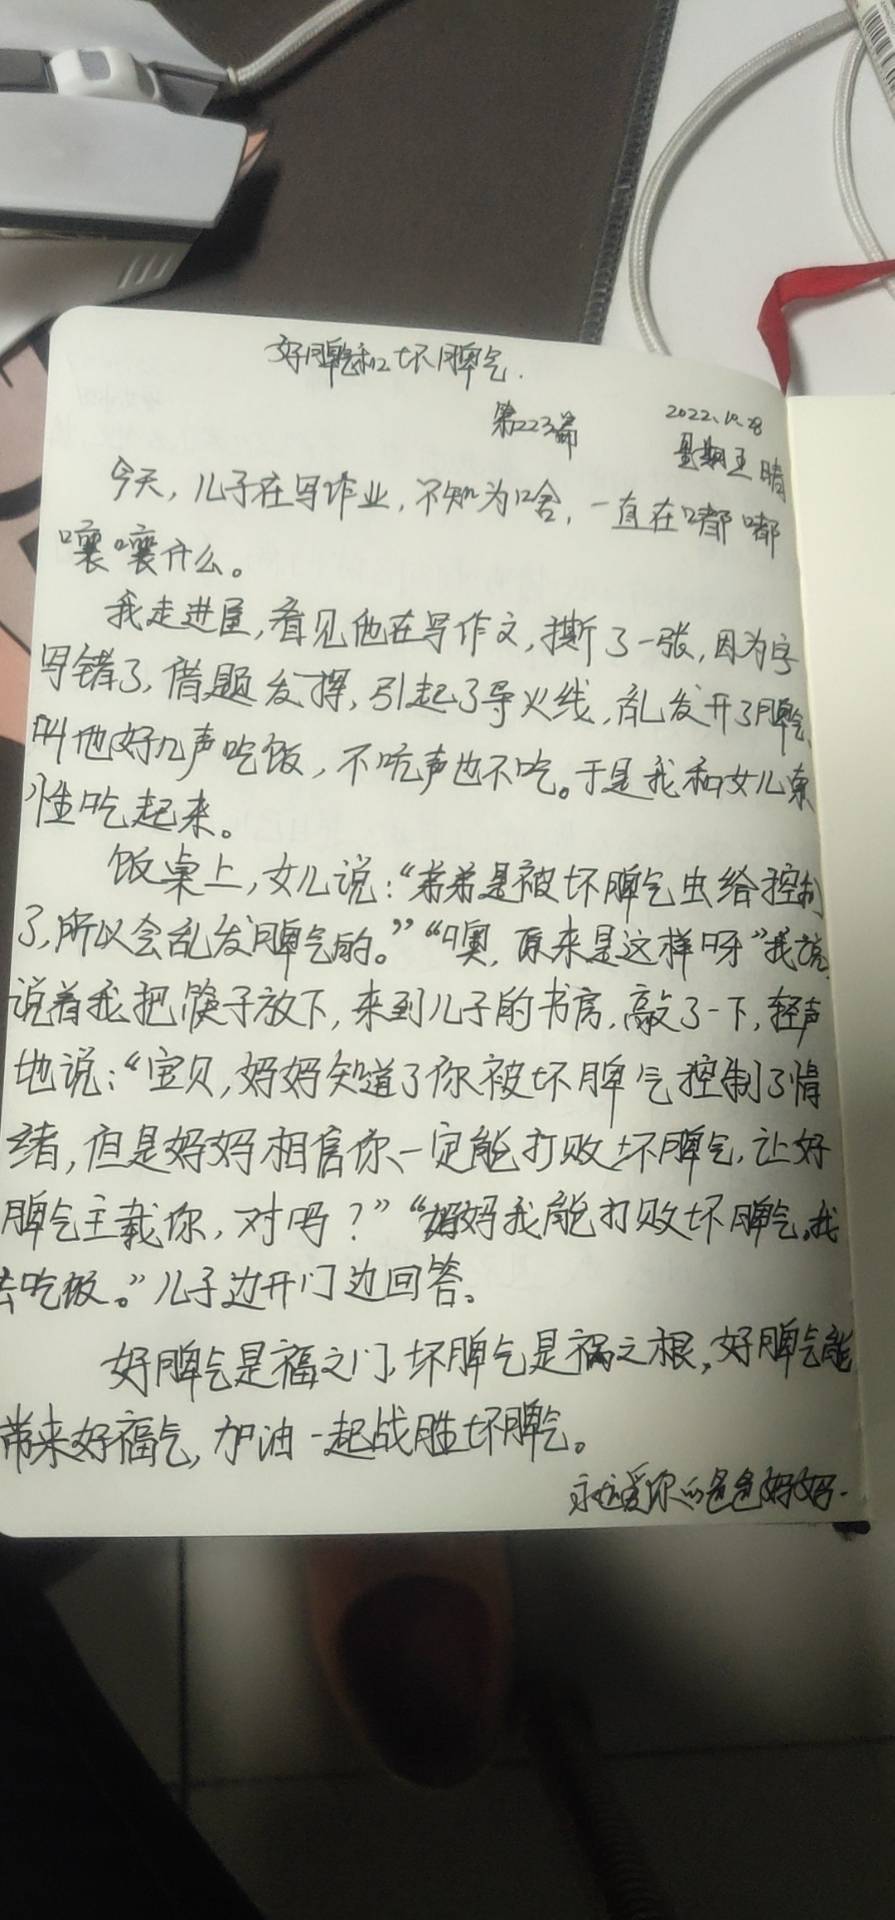 好脾气和坏脾气.
第223篇
2022.10.28
星期五 晴
今天,儿子在写作业,不知为啥,一直在嘟嘟
嚷嚷什么。
我走进屋,看见他在写作文,撕了一张,因为字
写错了,借题发挥,引起了导火线,乱发开了脾气,
叫他好几声吃饭,不吭声也不吃。于是我和女儿索
性吃起来。
饭桌上,女儿说:“弟弟是被坏脾气虫给控制
了,所以会乱发脾气的。”“噢,原来是这样呀”我
说着我把筷子放下,来到儿子的书房,敲了一下,轻声
地说:“宝贝,妈妈知道了你被坏脾气控制了情
绪,但是妈妈相信你一定能打败坏脾气,让好
脾气主载你,对吗?”“妈妈我能打败坏脾气,我
去吃饭。”儿子边开门边回答。
好脾气是福之门,坏脾气是祸之根,好脾气能
带来好福气,加油一起战胜坏脾气。
永远爱你的爸爸妈妈.